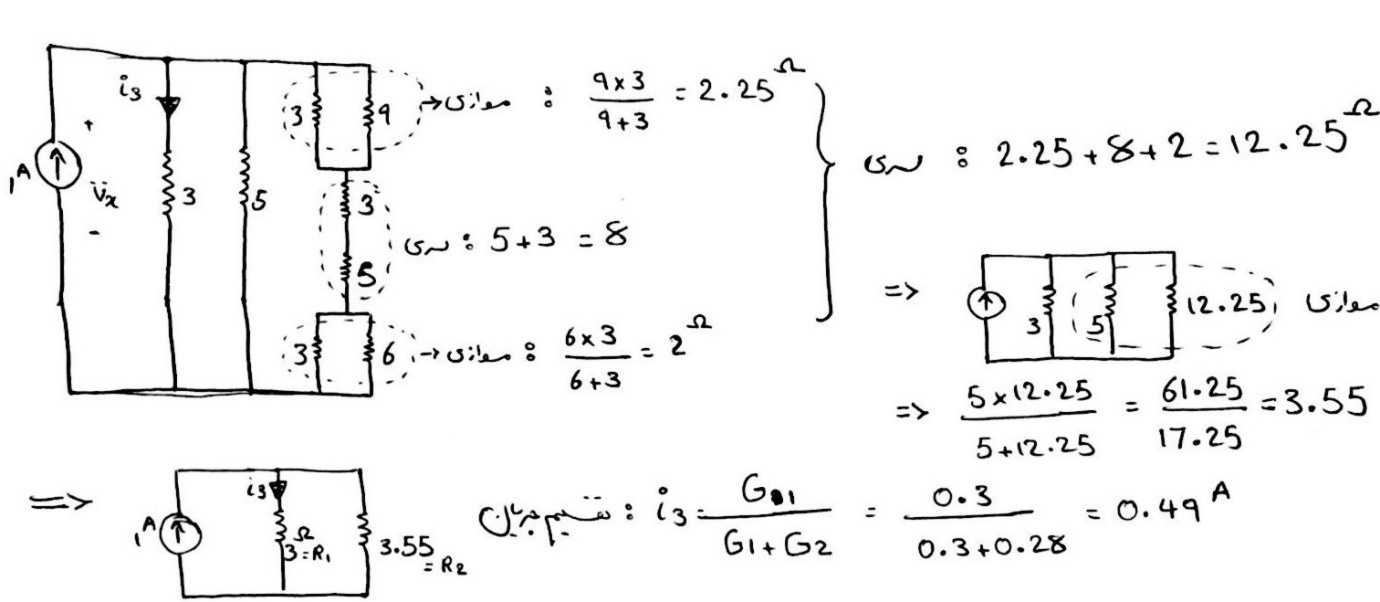 i₃ 3 9 → موازی : 9×3 / 9+3 = 2.25 Ω
1A + Vx - 3 5
3 5 سری : 5+3 = 8
3 6 → موازی : 6×3 / 6+3 = 2 Ω
سری : 2.25+8+2 = 12.25 Ω
=> 3 5 12.25 موازی
=> 5×12.25 / 5+12.25 = 61.25 / 17.25 = 3.55
=> 1A i₃ 3Ω=R₁ 3.55=R₂
تقسیم جریان : i₃ = G₁ / G₁+G₂ = 0.3 / 0.3+0.28 = 0.49 A